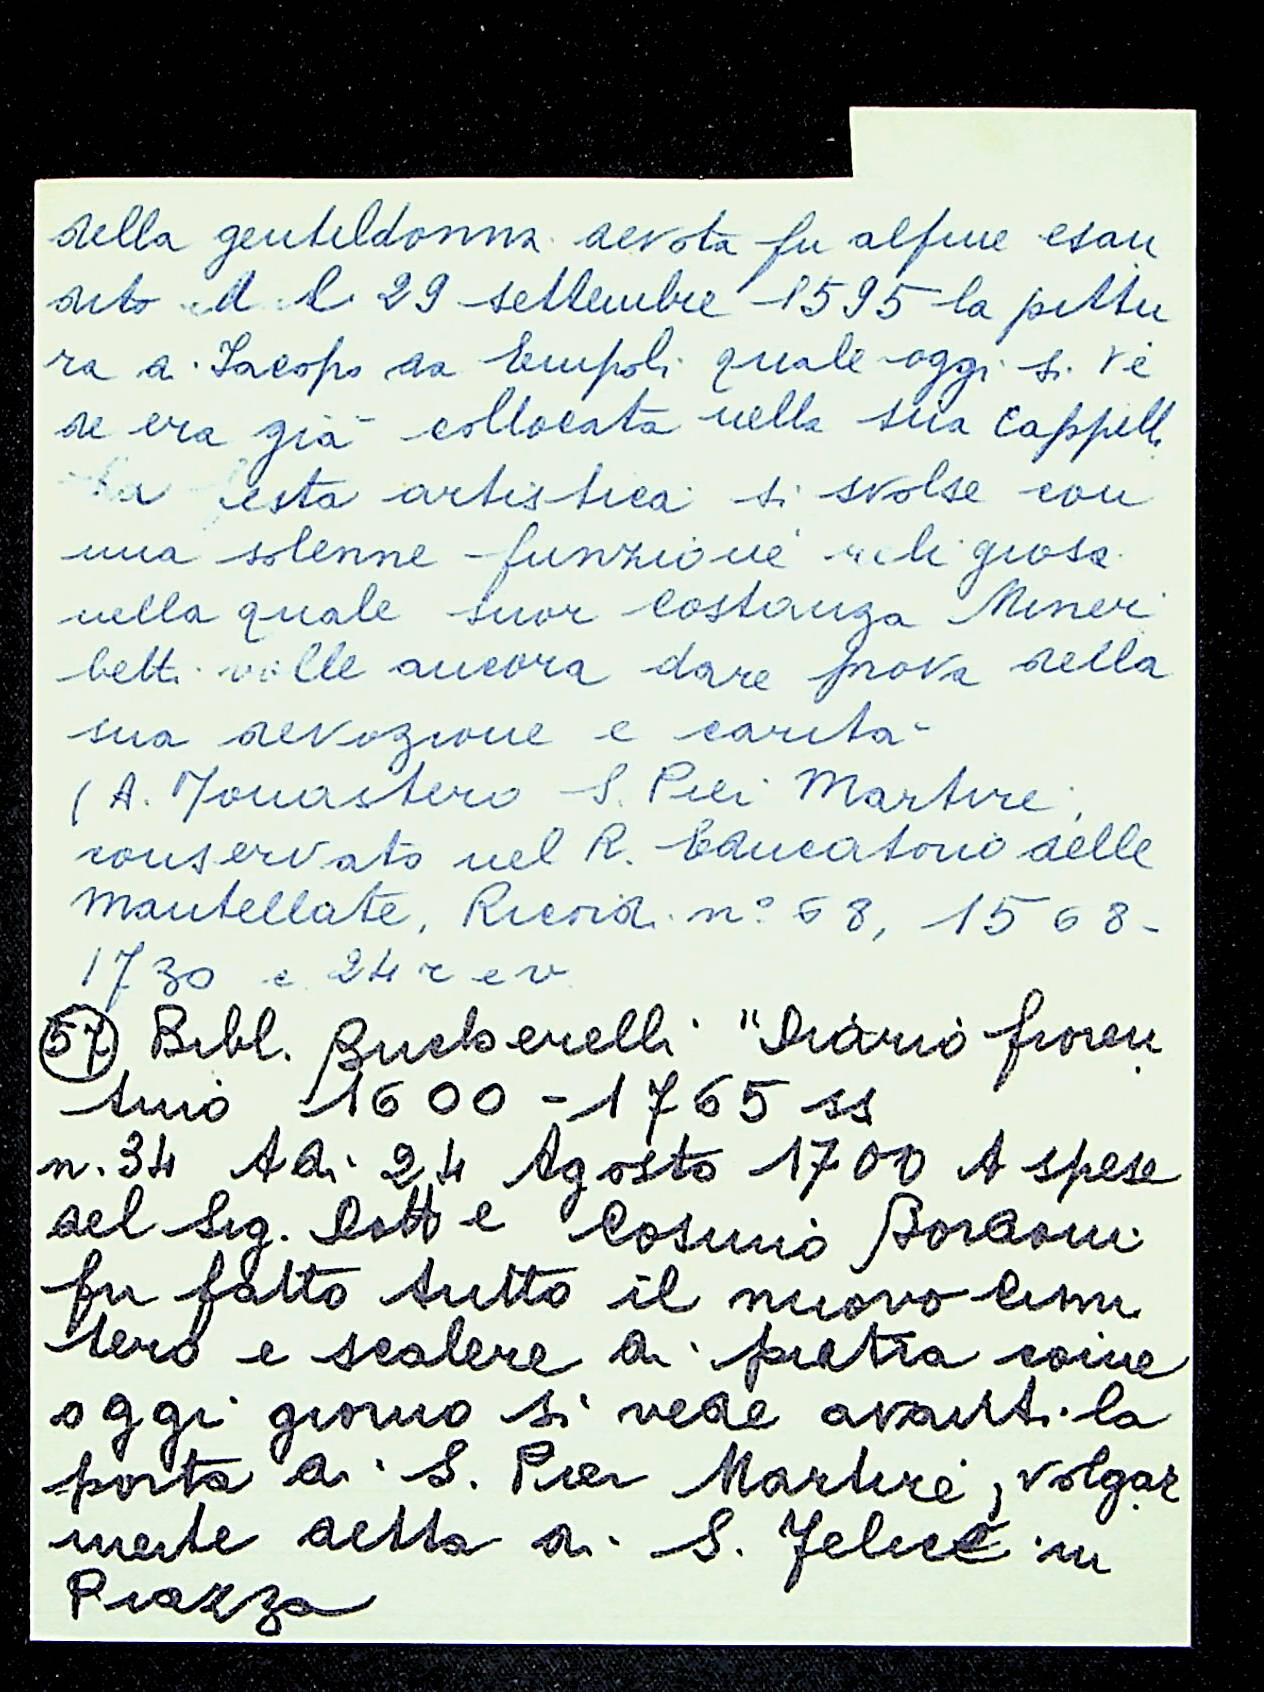 della gentildonna devota fu alfine esau
dito il 29 settembre 1595 la pittu
ra di Iacopo da Empoli quale oggi si ve
de era già collocata nella sua Cappell
La festa artistica si svolse con
una solenne funzione religiosa
nella quale suor Costanza Miner
betti volle ancora dare prova della
sua devozione e carità
(A. Monastero S. Pier Martire,
conservato nel R. Educatorio delle
Mantellate, Ricordi n° 68, 1568-
1730 c 24 r e v
57 Bibl. Buckerelli "Diario fioren
tino 1600-1765 ss
n. 34 Adi 24 Agosto 1700 A spese
del Sig. Dott e Cosimo Bordoni
fu fatto tutto il nuovo Cimi
tero e scalere di pietra come
oggi giorno si vede avanti la
porta di S. Pier Martire, volgar
mente detta di S. Felice in
Piazza